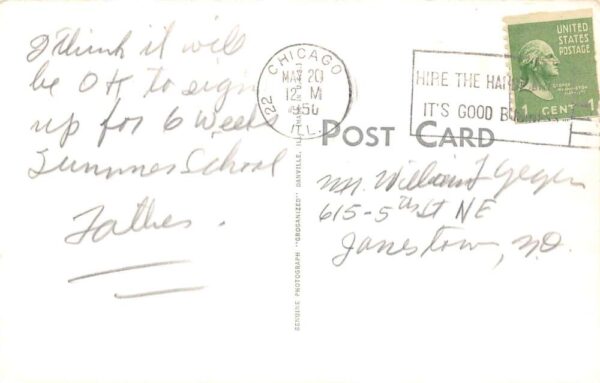 I think it will
be OK to sign
up for 6 weeks
Summer School
Father.
CHICAGO
22
MAY 20
12 M
1950
ILL.
HIRE THE HA
IT'S GOOD B
UNITED
STATES
POSTAGE
1 CENT 1
POST CARD
GENUINE PHOTOGRAPH "GROGANIZED" DANVILLE, ILL.
Mr. William
615-5th St NE
Jamestown, N.D.